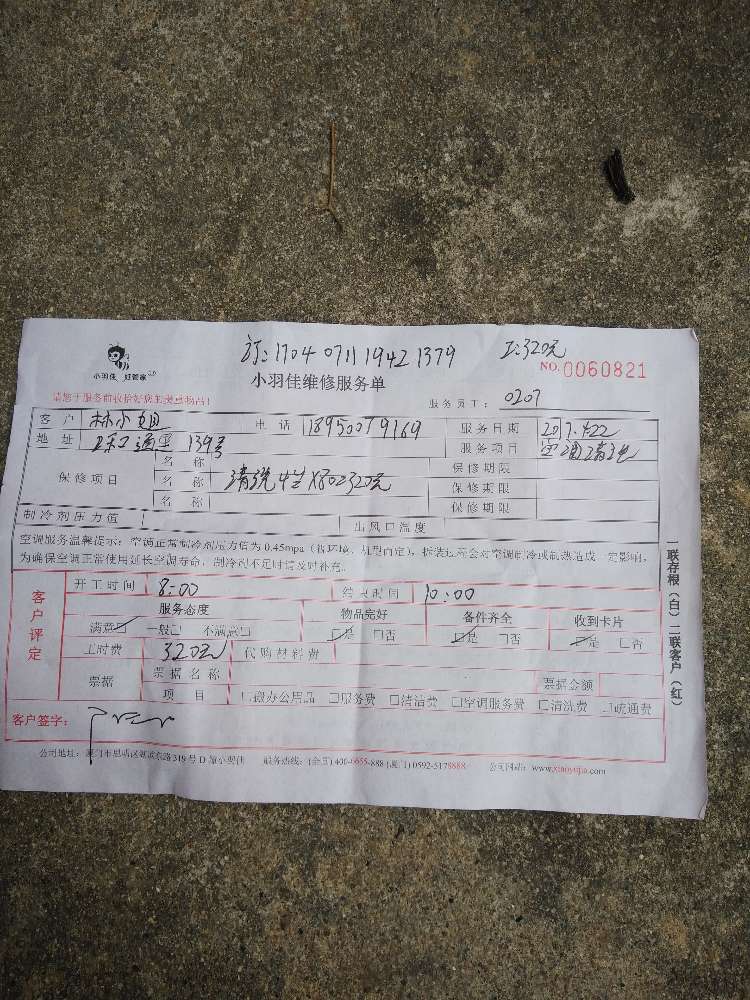 订:1704 0711 1942 1379 工:320元
小羽佳 好管家
小羽佳维修服务单 NO.0060821
请您于服务前收拾好您的贵重物品! 服务员工: 0207
客户 林小姐 电话 服务日期
地址 139号 服务项目 空调清洗
保修项目 名称 保修期限
名称 清洗 320元 保修期限
名称 保修期限
制冷剂压力值 出风口温度
空调服务温馨提示:空调正常制冷剂压力值为0.45mpa(循环境、机型而定),拆装过程会对空调制冷或制热造成一定影响,
为确保空调正常使用延长空调寿命,制冷剂不足时请及时补充。
客户评定
开工时间 8:00 结束时间 10:00
服务态度 物品完好 备件齐全 收到卡片
满意☑ 一般□ 不满意□ ☑是 □否 ☑是 □否 ☑是 □否
工时费 320元 代购材料费
票据 票据名称 票据金额
项目 □搬办公用品 □服务费 □清洁费 □空调服务费 □清洗费 □疏通费
客户签字:
公司地址:厦门市思明区 319号D 服务热线:(全国)400-1655-888(厦门)0592-5178888 公司网站:www.xiaoyujia.com
一联存根(白)二联客户(红)